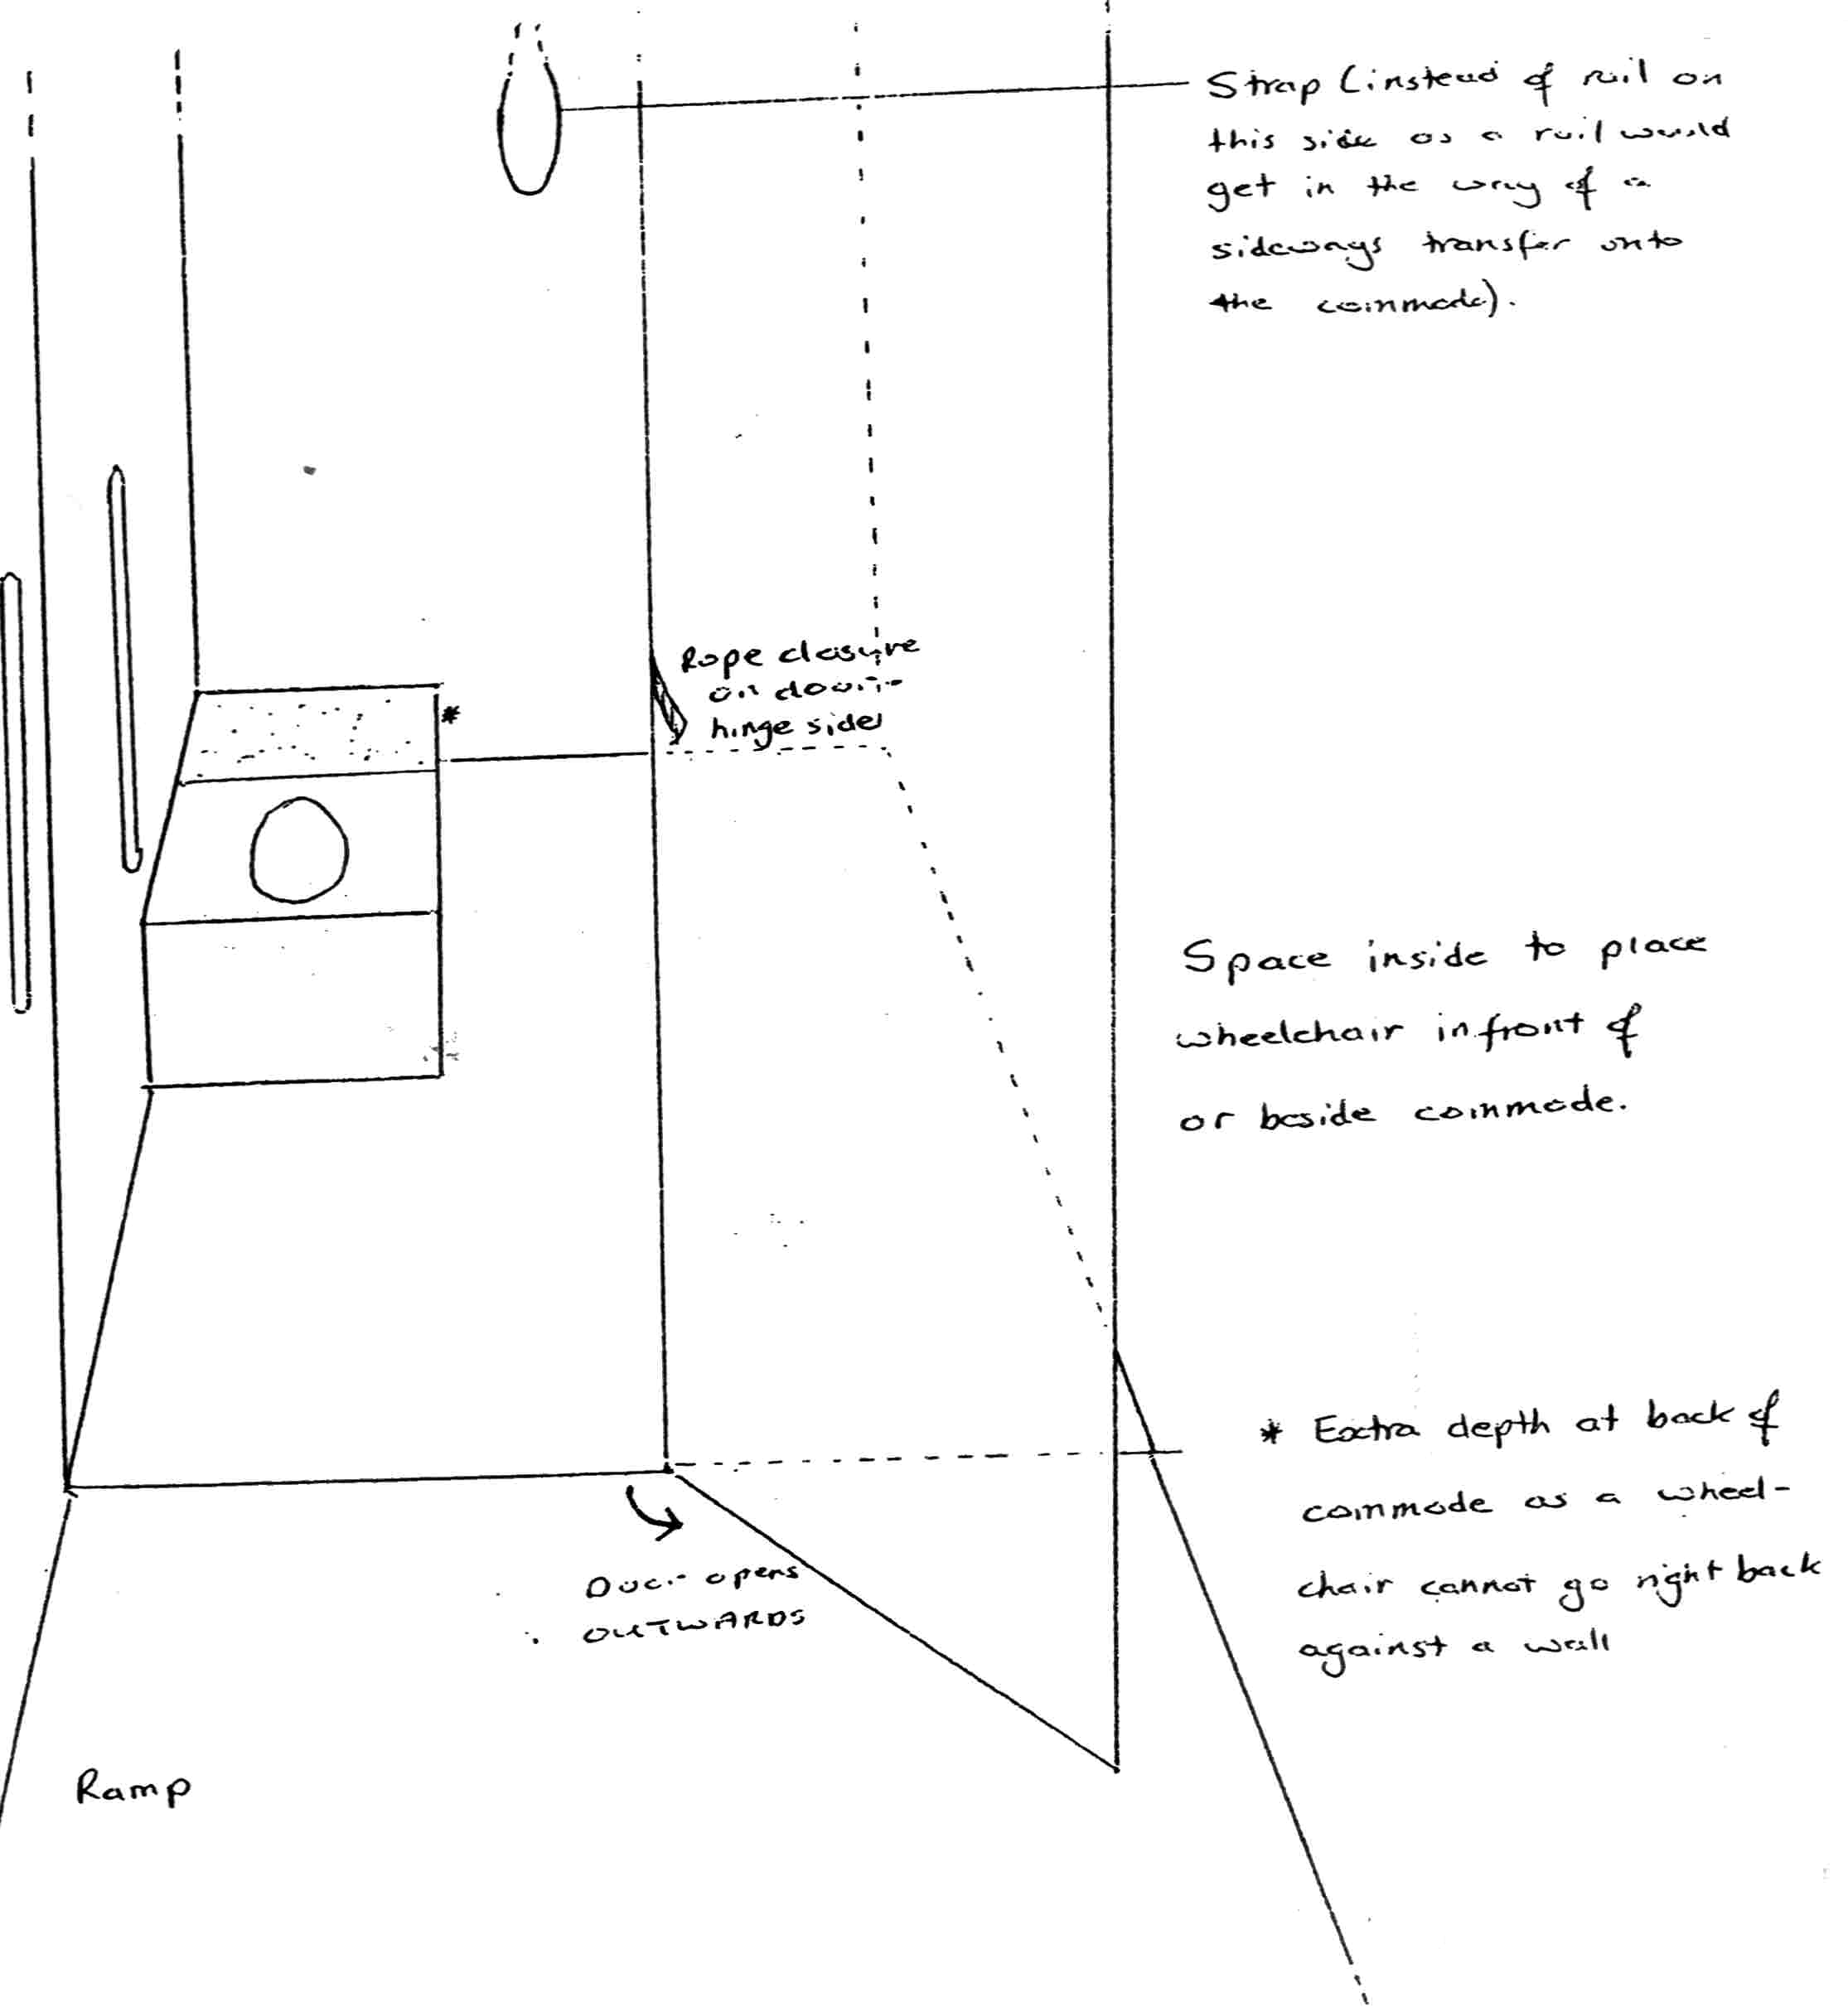 Strap (instead of rail on
this side as a rail would
get in the way of a
sideways transfer onto
the commode).
Rope closure
on door-
hinge side
*
Space inside to place
wheelchair in front of
or beside commode.
* Extra depth at back of
commode as a wheel-
chair cannot go right back
against a wall
Door opens
OUTWARDS
Ramp